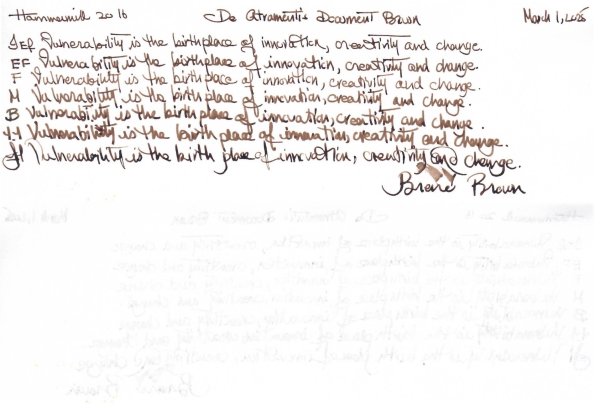 Hammermill 20 lb De Atramentis Document Brown March 1, 2025
Vulnerability is the birthplace of innovation, creativity and change.
EF Vulnerability is the birthplace of innovation, creativity and change.
F Vulnerability is the birthplace of innovation, creativity and change.
M Vulnerability is the birthplace of innovation, creativity and change.
B Vulnerability is the birthplace of innovation, creativity and change.
1.1 Vulnerability is the birth place of innovation, creativity and change.
Vulnerability is the birth place of innovation, creativity and change.
Brené Brown